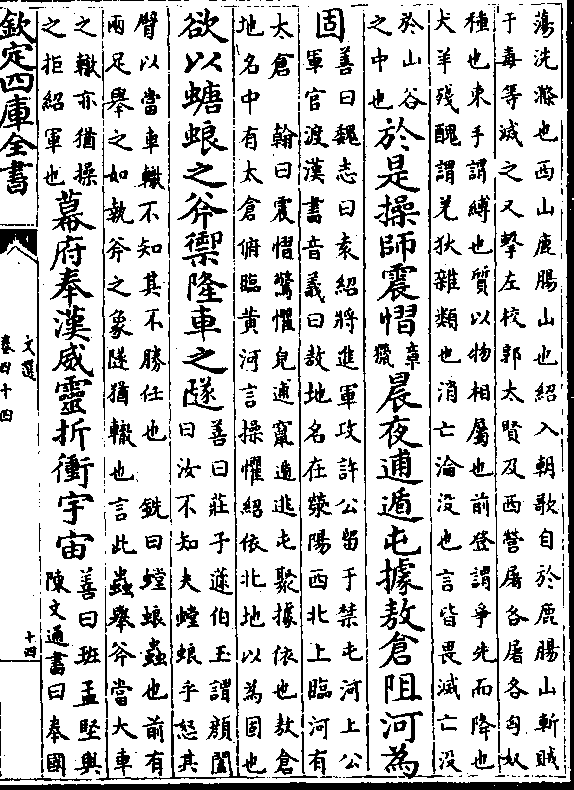 蕩洗滌也西山鹿腸山也紹入朝歌自於鹿腸山斬賊
于毒等滅之又擊左校郭太賢及西營屠各屠各匈奴
種也束手謂縛也質以物相屬也前登謂爭先而降也
犬羊殘醜謂羌狄雜類也消亡淪没也言皆畏滅亡没
於山谷
之中也
於是操師震慴
章
獵
晨夜逋遁屯據敖倉阻河為
固
善曰魏志曰袁紹將進軍攻許公留于禁屯河上公
軍官渡漢書音義曰敖地名在滎陽西北上臨河有
太倉 翰曰震慴驚懼皃逋竄遁逃屯聚據依也敖倉
地名中有太倉俯臨黃河言操懼紹依北地以為固也
欲以螗蜋之斧禦隆車之隧
善曰莊子蘧伯玉謂顔闔
曰汝不知夫螳蜋乎怒其
臂以當車轍不知其不勝任也 銑曰螳蜋蟲也前有
兩足舉之如執斧之象隧猶轍也言此蟲舉斧當大車
之轍亦猶操
之拒紹軍也
幕府奉漢威靈折衝宇宙
善曰班孟堅與
陳文通書曰奉國
欽定四庫全書
文選
卷四十四
十四